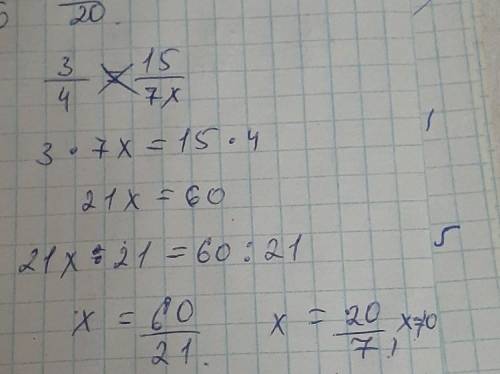 20.
3/4 = 15/7x
3 · 7x = 15 · 4
21x = 60
21x : 21 = 60 : 21
x = 60/21. x = 20/7,